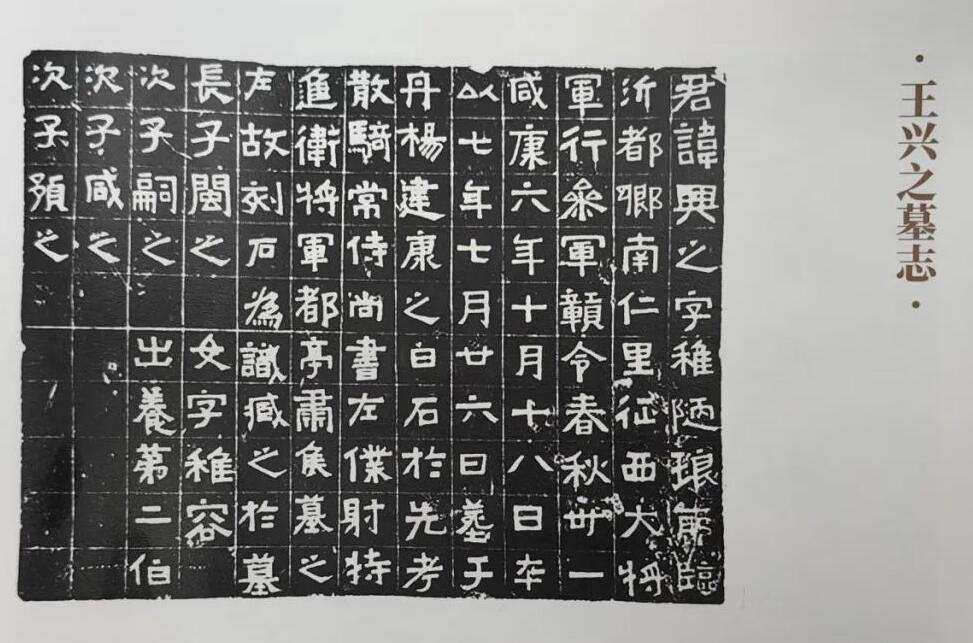 ·王兴之墓志·
君諱興之字稚陋琅耶臨
沂都鄉南仁里征西大將
軍行參軍贛令春秋卌一
咸康六年十月十八日卒
以七年七月廿六日葬于
丹楊建康之白石於先考
散騎常侍尚書左僕射特
進衛將軍都亭肅侯墓之
左故刻石為識臧之於墓
長子閩之 女字稚容
次子嗣之 出養第二伯
次子咸之
次子預之